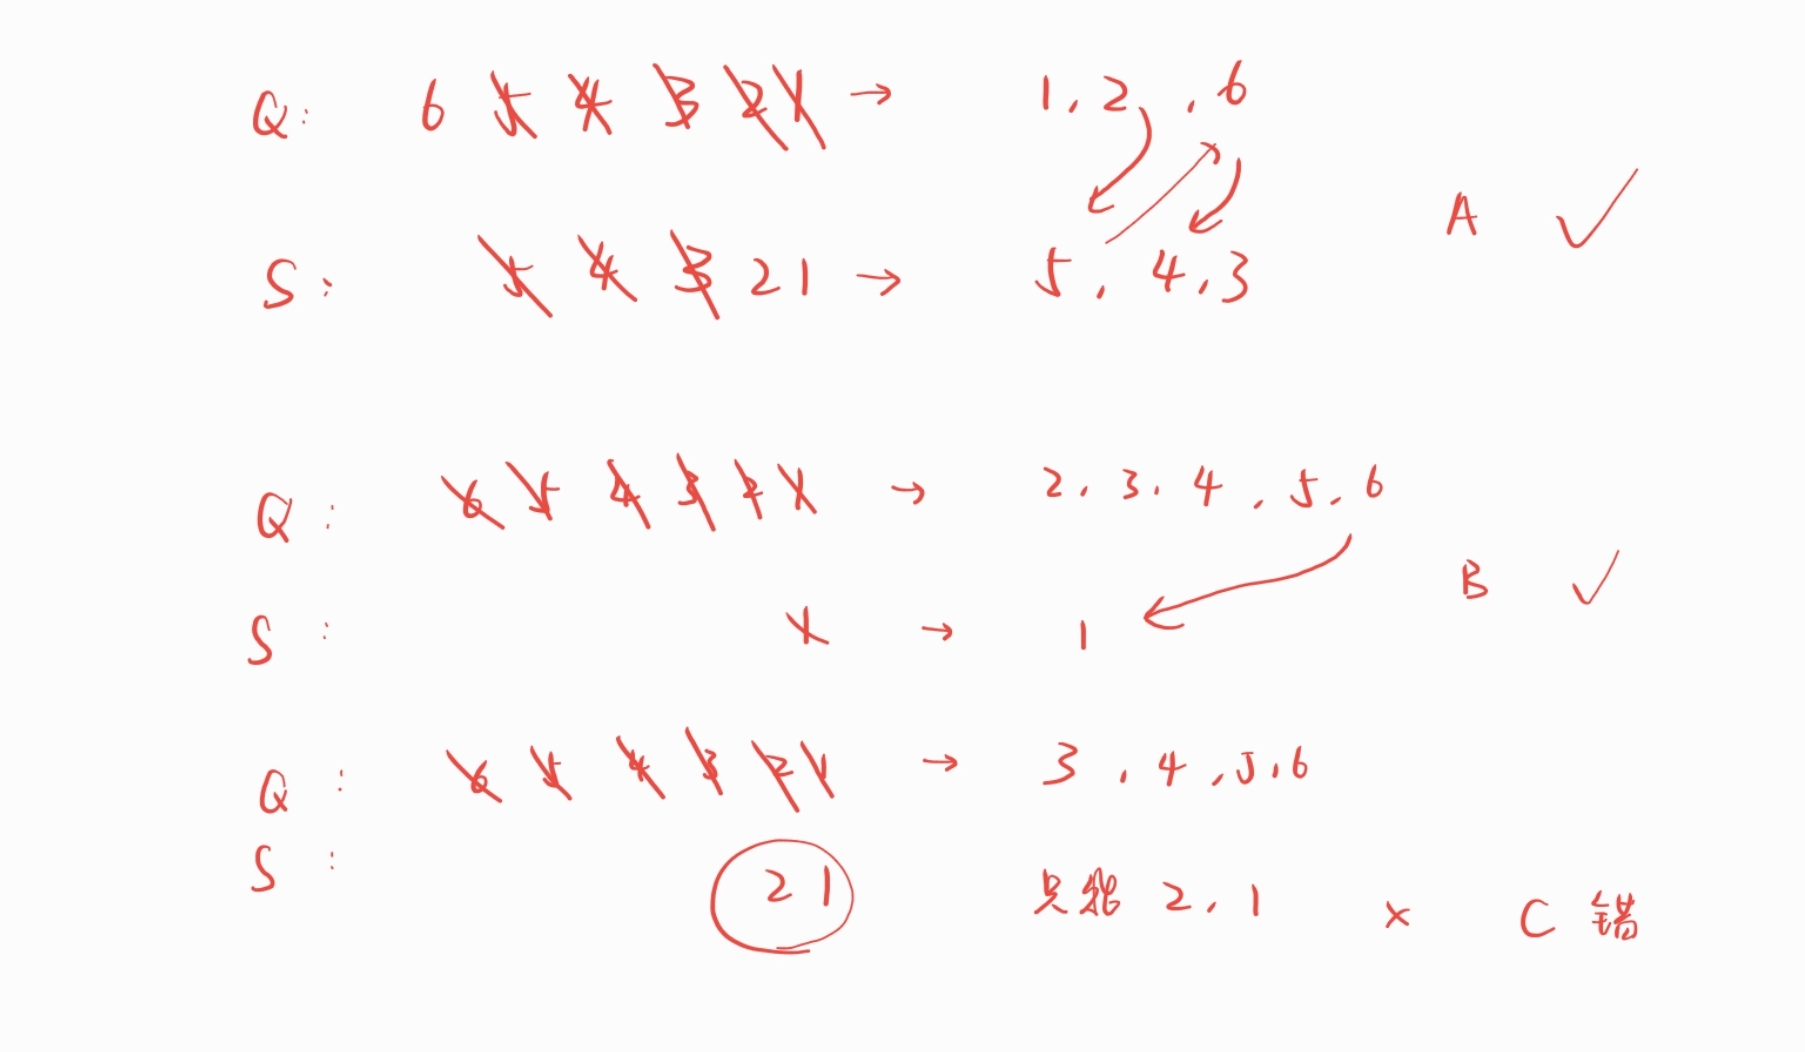 Q: 6 5 4 3 2 1 → 1, 2, 6
S: 5 4 3 2 1 → 5, 4, 3
A ✓
Q: 6 5 4 3 2 1 → 2, 3, 4, 5, 6
S: 1 → 1
B ✓
Q: 6 5 4 3 2 1 → 3, 4, 5, 6
S: 2 1 只能 2, 1 × C 错